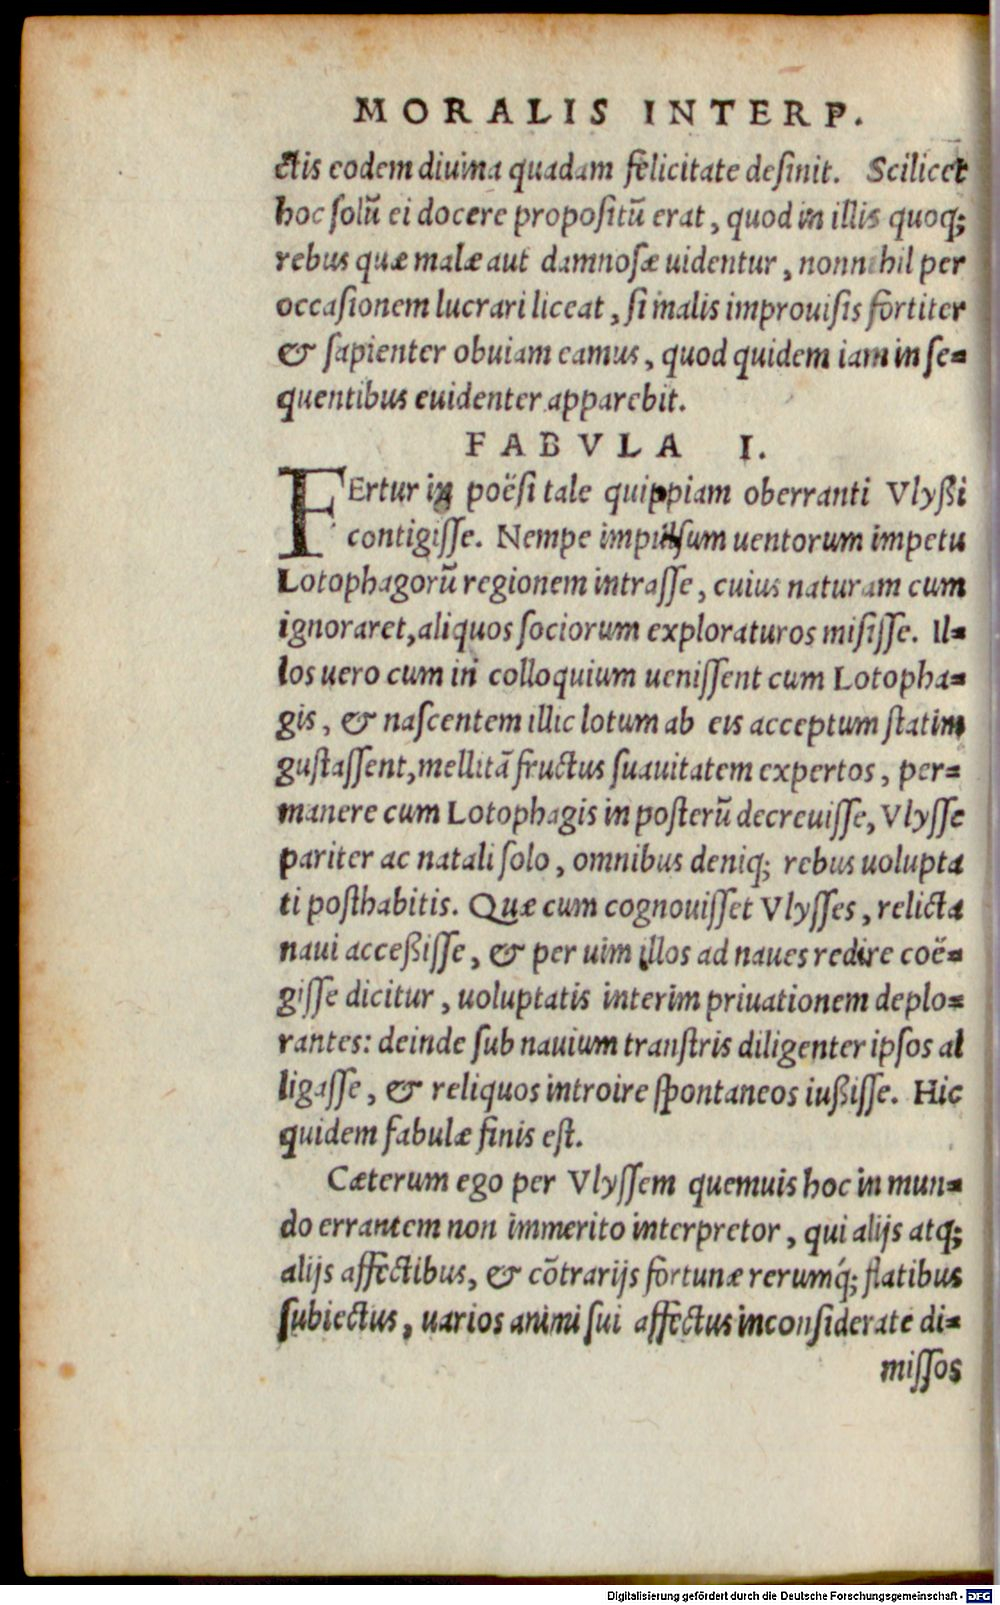 MORALIS INTERP.
ctis eodem diuina quadam felicitate desinit. Scilicet
hoc solũ ei docere propositũ erat, quod in illis quoq;
rebus quæ malæ aut damnosæ uidentur, nonnihil per
occasionem lucrari liceat, si malis improuisis fortiter
& sapienter obuiam eamus, quod quidem iam in se=
quentibus euidenter apparebit.
FABVLA I.
FErtur in poësi tale quippiam oberranti Vlyßi
contigisse. Nempe impulsum uentorum impetu
Lotophagorũ regionem intrasse, cuius naturam cum
ignoraret, aliquos sociorum exploraturos misisse. Il=
los uero cum in colloquium uenissent cum Lotopha=
gis, & nascentem illic lotum ab eis acceptum statim
gustassent, mellitã fructus suauitatem expertos, per=
manere cum Lotophagis in posterũ decreuisse, Vlysse
pariter ac natali solo, omnibus deniq; rebus uolupta
ti posthabitis. Quæ cum cognouisset Vlysses, relicta
naui acceßisse, & per uim illos ad naues redire coë=
gisse dicitur, uoluptatis interim priuationem deplo=
rantes: deinde sub nauium transtris diligenter ipsos al
ligasse, & reliquos introire spontaneos iußisse. Hic
quidem fabulæ finis est.
Cæterum ego per Vlyssem quemuis hoc in mun=
do errantem non immerito interpretor, qui alijs atq;
alijs affectibus, & cõtrarijs fortunæ rerumq́; flatibus
subiectus, uarios animi sui affectus inconsiderate di=
missos
Digitalisierung gefördert durch die Deutsche Forschungsgemeinschaft - DFG